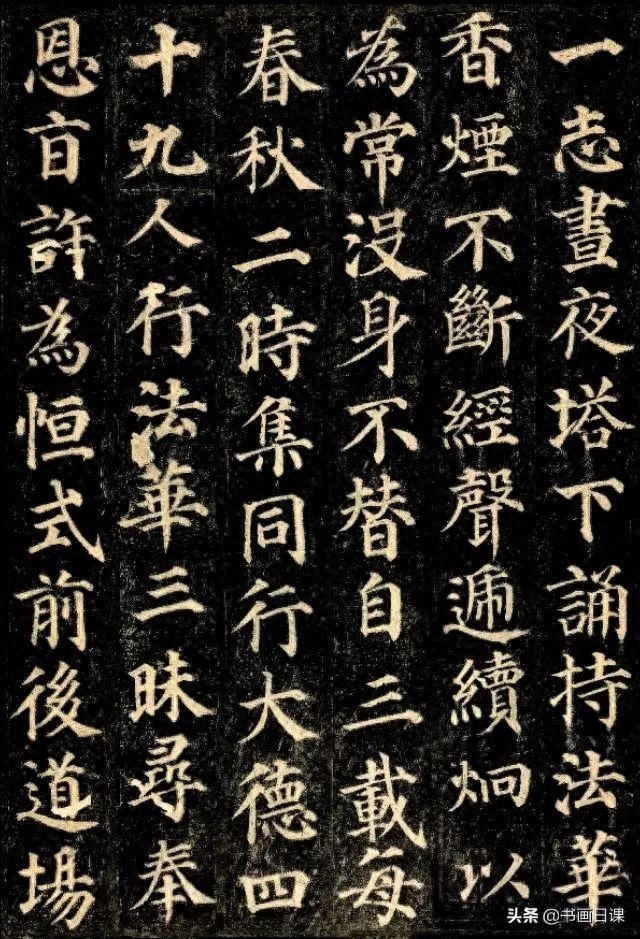 一志晝夜塔下誦持法華
香煙不斷經聲遞續炯以
為常沒身不替自三載每
春秋二時集同行大德四
十九人行法華三昧尋奉
恩旨許為恒式前後道場
头条 @书画日课